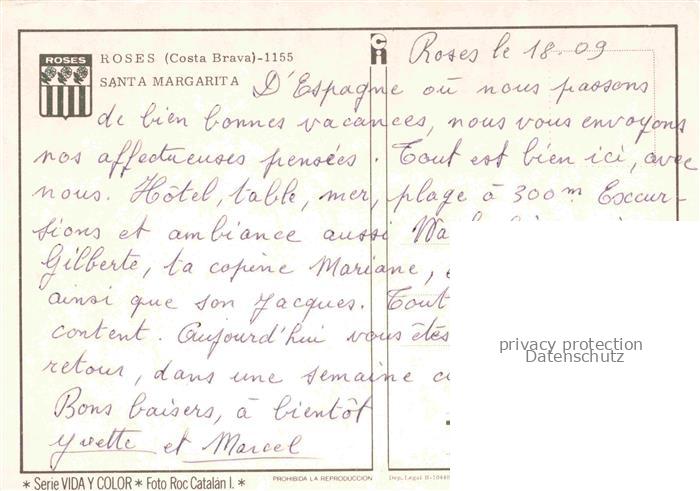 ROSES
ROSES (Costa Brava)-1155
SANTA MARGARITA
Roses le 18.09
D'Espagne où nous passons
de bien bonnes vacances, nous vous envoyons
nos affectueuses pensées. Tout est bien ici, avec
nous. Hôtel, table, mer, plage à 300m Excur-
sions et ambiance aussi
Gilberte, ta copine Mariane,
ainsi que son Jacques. Tout
content. Aujourd'hui vous êtes
retour, dans une semaine
Bons baisers, à bientôt
Yvette et Marcel
privacy protection
Datenschutz
* Serie VIDA Y COLOR * Foto Roc Catalán I. *
PROHIBIDA LA REPRODUCCION
Dep. Legal B-10440